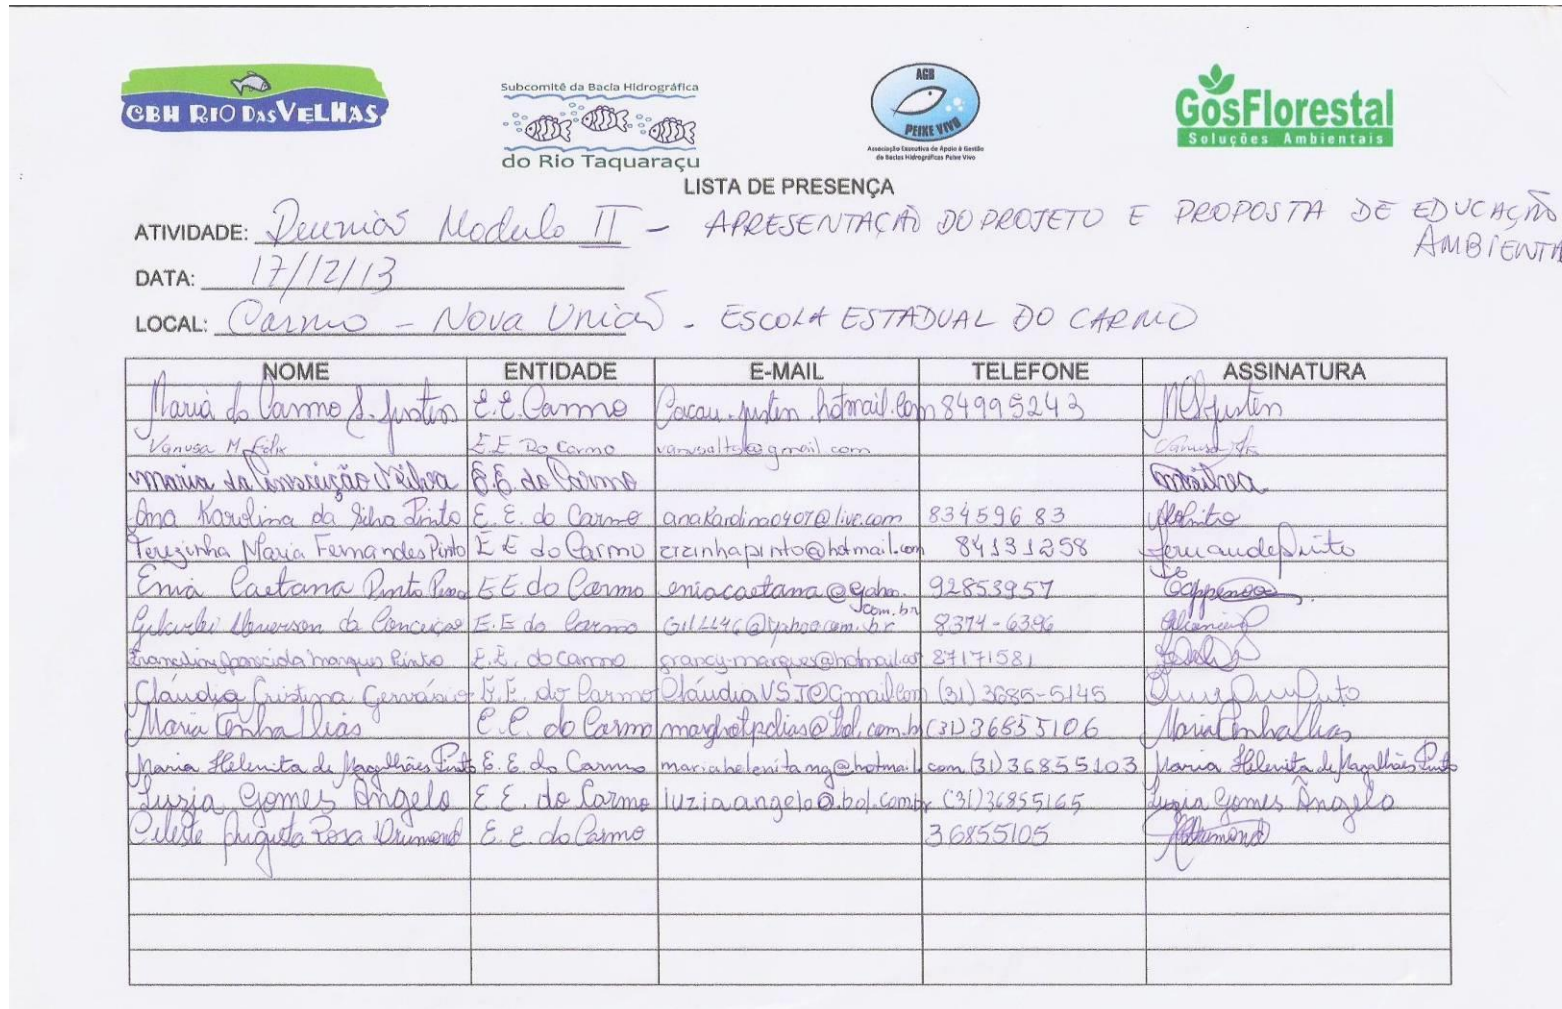 CBH RIO DAS VELHAS
Subcomitê da Bacia Hidrográfica
do Rio Taquaraçu
AGB
PEIXE VIVO
Associação Executiva de Apoio à Gestão
de Bacias Hidrográficas Peixe Vivo
GosFlorestal
Soluções Ambientais
LISTA DE PRESENÇA
ATIVIDADE: Reunião Modulo II - APRESENTAÇÃO DO PROJETO E PROPOSTA DE EDUCAÇÃO
AMBIENTA
DATA: 17/12/13
LOCAL: Carmo - Nova União - ESCOLA ESTADUAL DO CARMO
NOME ENTIDADE E-MAIL TELEFONE ASSINATURA
Maria do Carmo S. Justen E.E. Carmo Cacau.justen.hotmail.com 84995243 MCSJusten
Vanusa M. Felix E.E Do Carmo vanusalto@gmail.com Vanusa
Maria da Conceição Silva E.E. do Carmo
Ana Karolina da Silva Pinto E. E. do Carmo anakarolina0407@live.com 83459683
Terezinha Maria Fernandes Pinto E E do Carmo zizinhapinto@hotmail.com 84131258 Fernandes Pinto
Enia Caetana Pinto E E do Carmo eniacaetana@yahoo.com.br 92853957
da Conceição E.E do Carmo Gill146@yahoo.com.br 8374-6396
Aparecida Marques Pinto E.E. do Carmo francy-marques@hotmail.com 87171581
Cláudia Cristina Gervásio E.E. do Carmo CláudiaVSJ@Gmail.com (31) 3685-5145
Maria Penha Dias E.E. do Carmo (31) 36855106 Maria Penha Dias
Maria Helenita de Magalhães Pinto E. E. do Carmo mariahelenitamg@hotmail.com (31) 36855103 Maria Helenita de Magalhães Pinto
Luzia Gomes Ângelo E.E. do Carmo luziaangelo@bol.com.br (31) 36855165 Luzia Gomes Ângelo
Celeste Augusta Rosa Drumond E. E. do Carmo 36855105